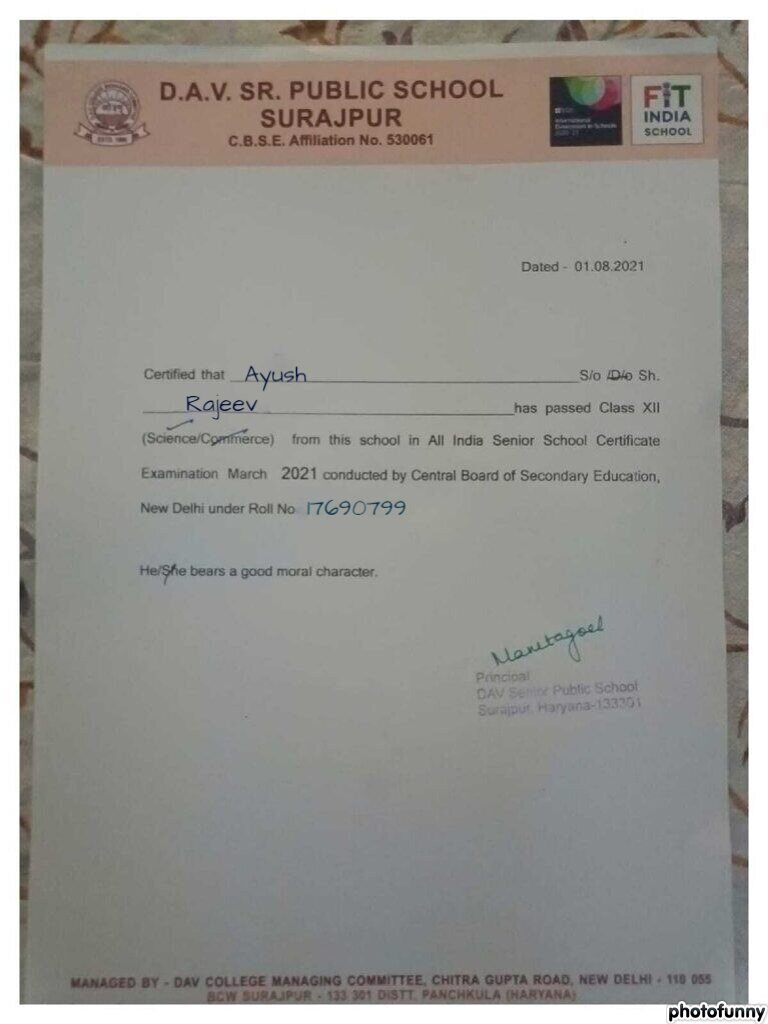 D.A.V. SR. PUBLIC SCHOOL
SURAJPUR
C.B.S.E. Affiliation No. 530061
International
Dimension in Schools
FiT
INDIA
SCHOOL
ESTD. 1886
Dated - 01.08.2021
Certified that Ayush S/o /D/o Sh.
Rajeev has passed Class XII
(Science/Commerce) from this school in All India Senior School Certificate
Examination March 2021 conducted by Central Board of Secondary Education,
New Delhi under Roll No 17690799
He/She bears a good moral character.
Mamtagoel
Principal
DAV Senior Public School
Surajpur, Haryana-133301
MANAGED BY - DAV COLLEGE MANAGING COMMITTEE, CHITRA GUPTA ROAD, NEW DELHI - 110 055
BCW SURAJPUR - 133 301 DISTT. PANCHKULA (HARYANA)
photofunny